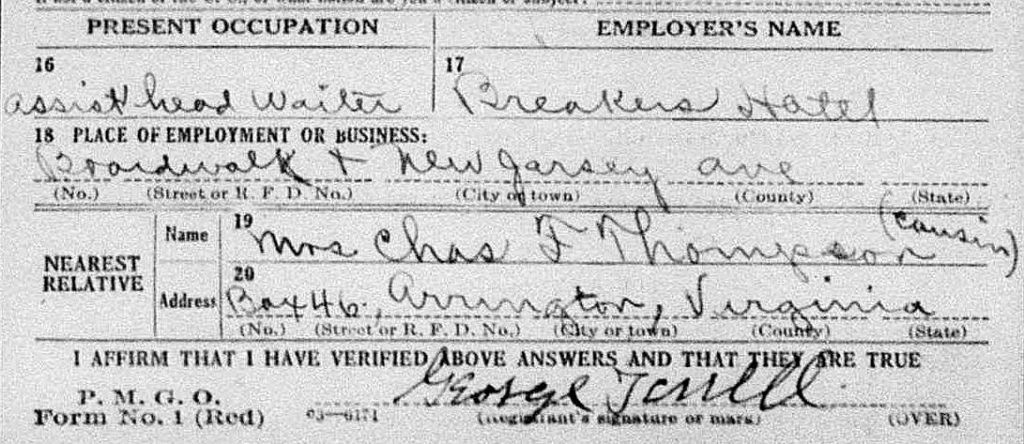 PRESENT OCCUPATION EMPLOYER'S NAME
16 17
assist head Waiter Breakers Hotel
18 PLACE OF EMPLOYMENT OR BUSINESS:
Boardwalk + New Jarsey ave
(No.) (Street or R. F. D. No.) (City or town) (County) (State)
NEAREST RELATIVE
Name 19 Mrs Chas F Thompson (Cousin)
Address 20 Box 46, Arrington, Virginia
(No.) (Street or R. F. D. No.) (City or town) (County) (State)
I AFFIRM THAT I HAVE VERIFIED ABOVE ANSWERS AND THAT THEY ARE TRUE
P. M. G. O.
Form No. 1 (Red) 03—6171 George Terrell
(Registrant's signature or mark) (OVER)